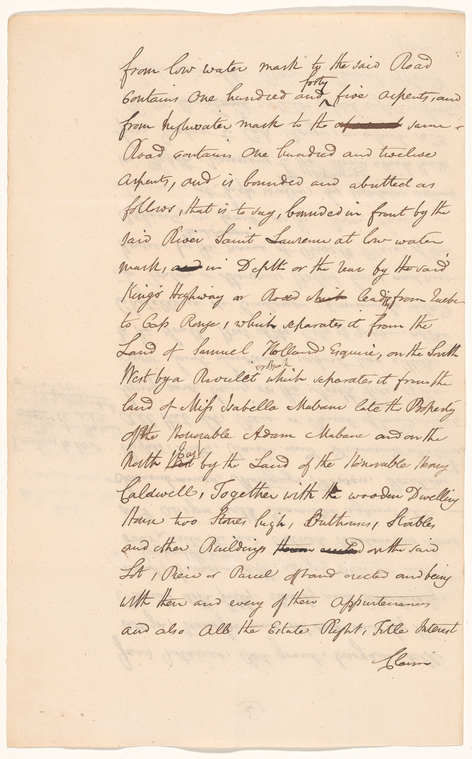 from low water mark to the said Road
contains one hundred and forty five arpents, and
from highwater mark to the same
Road contains one hundred and twelve
arpents, and is bounded and abutted as
follows, that is to say, bounded in front by the
said River Saint Lawrence at low water
mark, and in Depth or the rear by the
King's Highway or Road leading from Quebec
to Cap Rouge, which separates it from the
Land of Samuel Holland Esquire, on the South
West by a Rivulet or Brook which separates it from the
land of Miss Isabella Mabane late the Property
of the Honorable Adam Mabane and on the
North East by the Land of the Honorable Henry
Caldwell, Together with the wooden Dwelling
House two Stories high, Outhouses, Stables
and other Buildings on the said
Lot, Piece or Parcel of Land erected and being
with them and every of their appurtenances
and also all the Estate Right, Title Interest
Claim